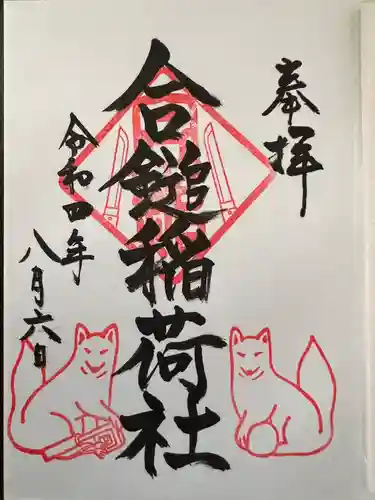 奉拝
合鎚稲荷社
令和四年
八月六日